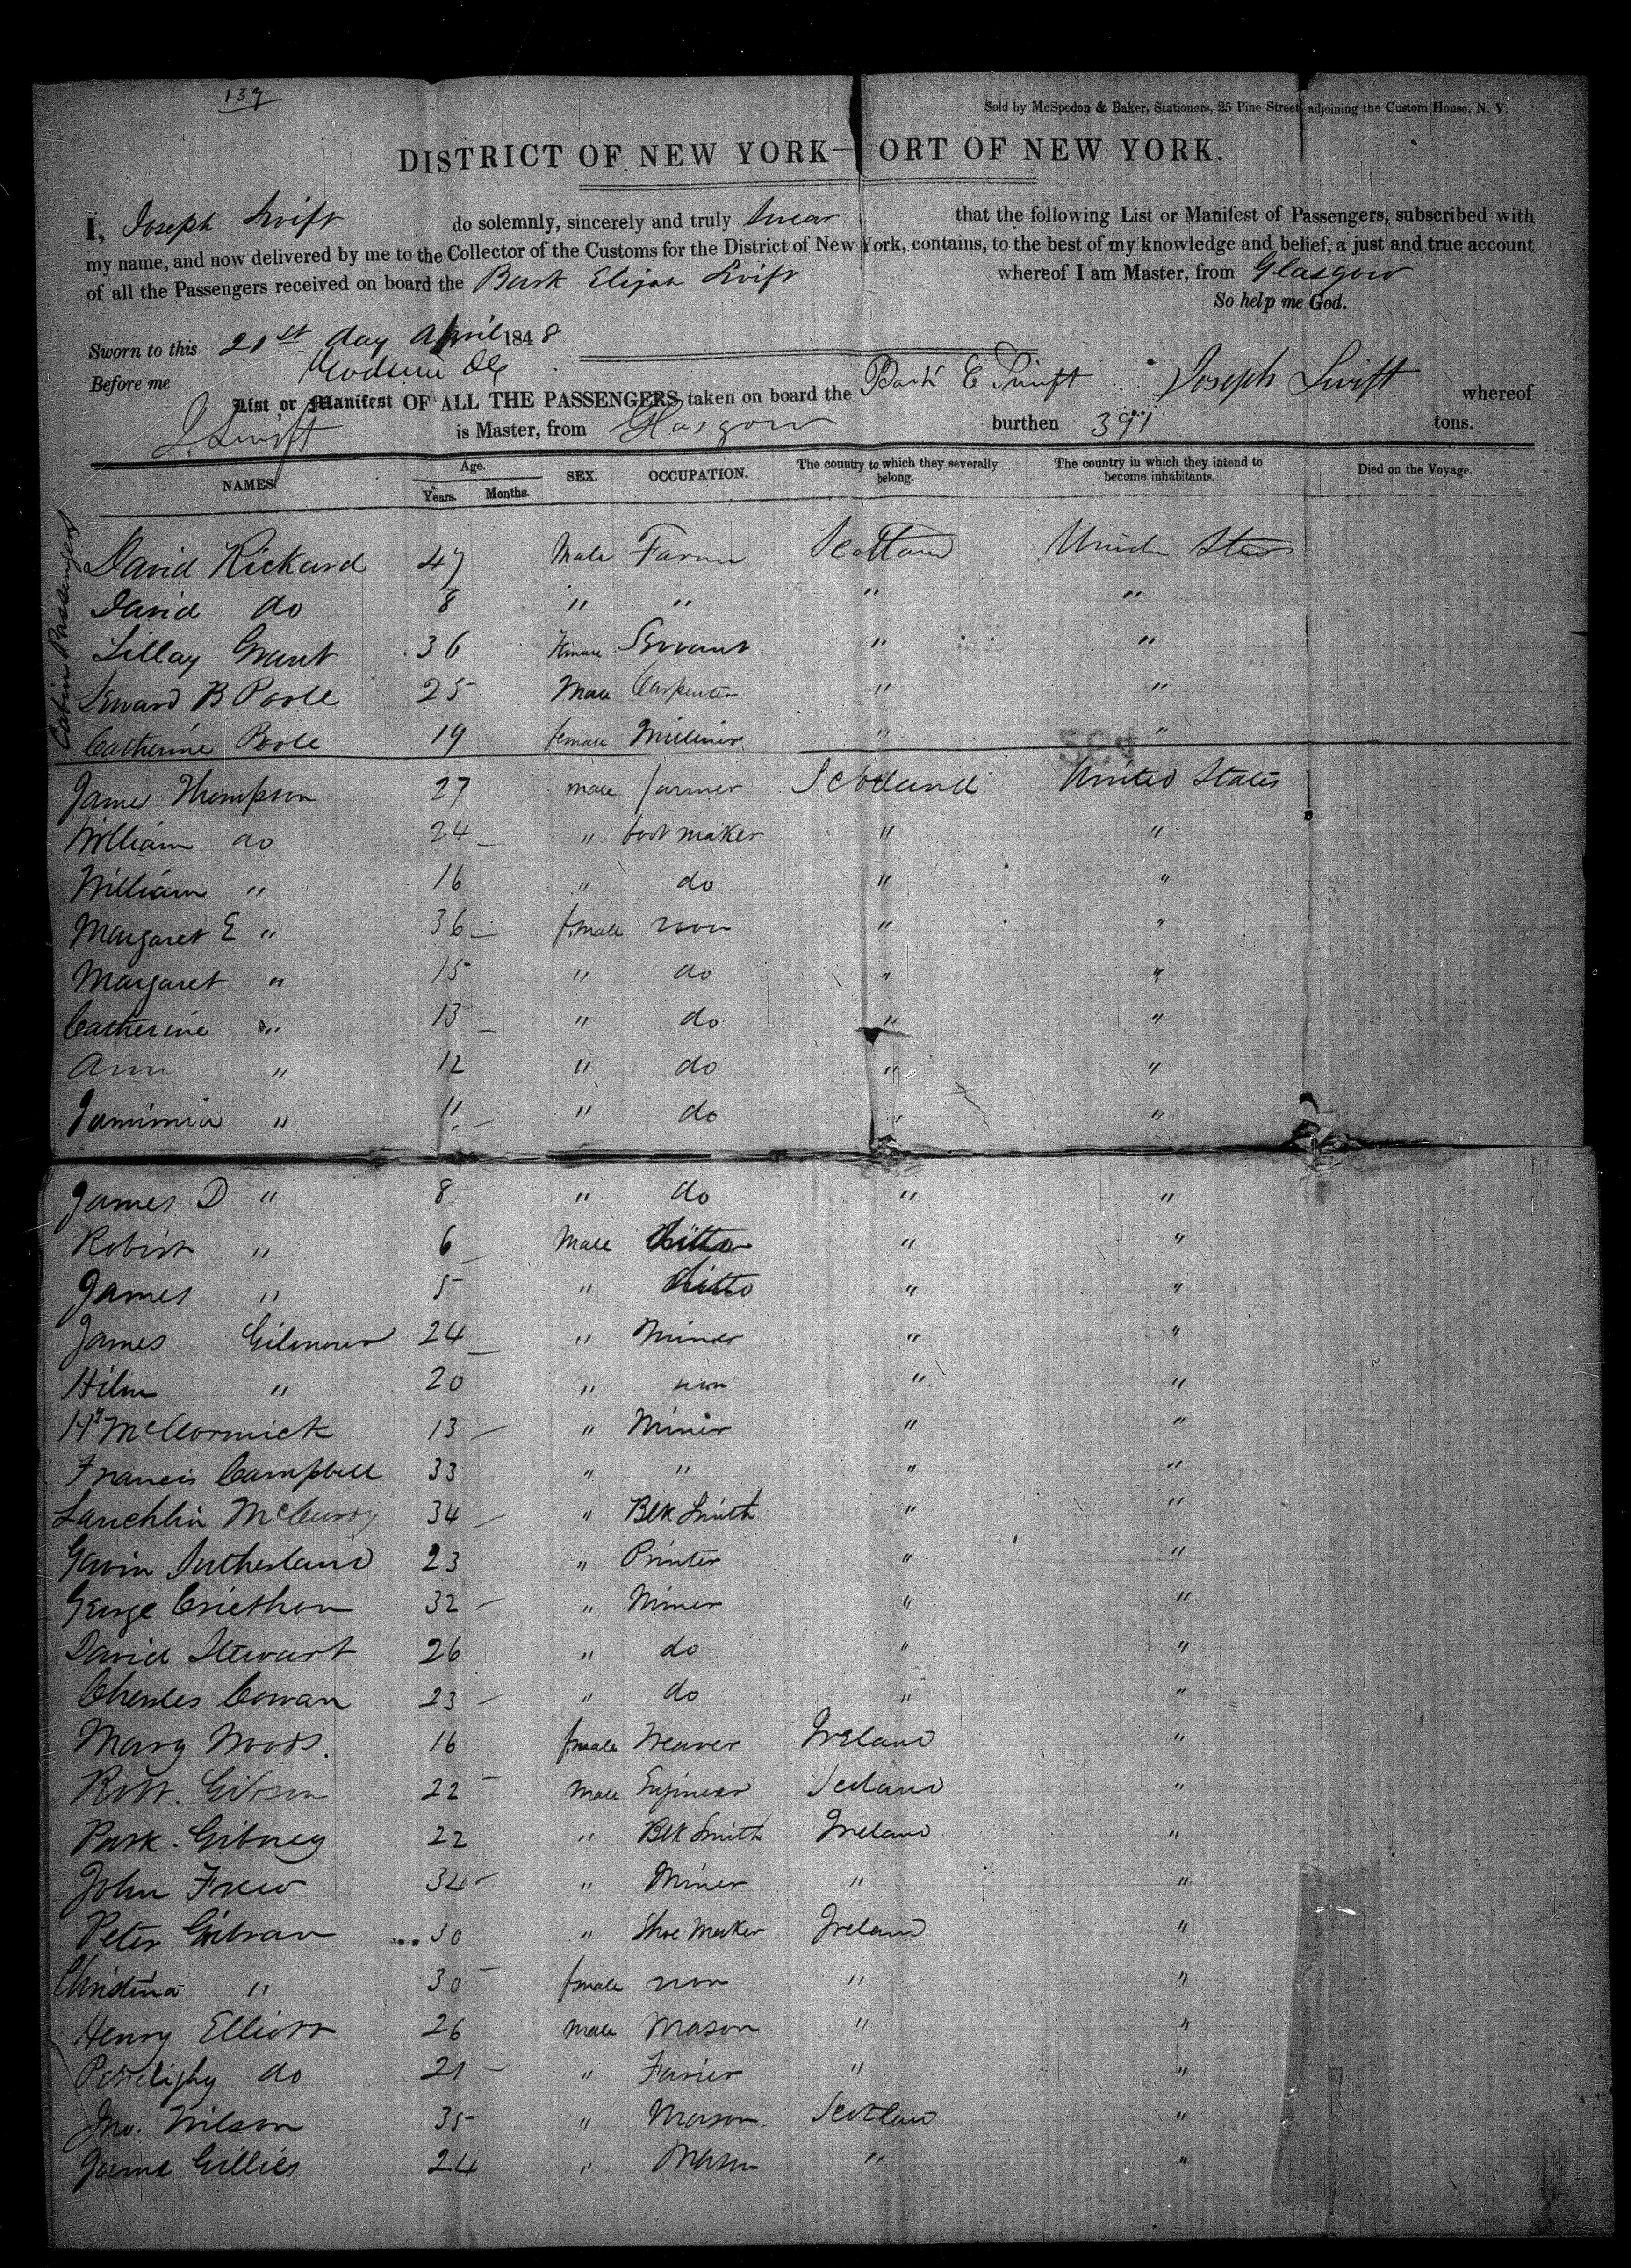 139
Sold by McSpedon & Baker, Stationers, 25 Pine Street, adjoining the Custom House, N. Y.
DISTRICT OF NEW YORK— ORT OF NEW YORK.
I, Joseph Swift do solemnly, sincerely and truly Swear that the following List or Manifest of Passengers, subscribed with
my name, and now delivered by me to the Collector of the Customs for the District of New York, contains, to the best of my knowledge and belief, a just and true account
of all the Passengers received on board the Bark Elijah Swift whereof I am Master, from Glasgow
So help me God.
Sworn to this 21st day April 1848
Before me
List or Manifest OF ALL THE PASSENGERS taken on board the Bark E Swift Joseph Swift whereof
J. Swift is Master, from Glasgow burthen 391 tons.
NAMES Age. Years. Months. SEX. OCCUPATION. The country to which they severally belong. The country in which they intend to become inhabitants. Died on the Voyage.
Cabin Passengers
David Rickard 47 Male Farmer Scotland United States
David do 8 " " " "
Lillay Grant 36 Female Servant " "
Seward B Poole 25 Male Carpenter " "
Catherine Poole 19 female Milliner " "
James Thompson 27 male farmer Scotland United States
William do 24 " boot maker " "
William " 16 " do " "
Margaret E " 36 female non " "
Margaret " 15 " do " "
Catherine " 13 " do " "
Ann " 12 " do " "
Jamimia " 11 " do " "
James D " 8 " do " "
Robert " 6 Male Ditto " "
James " 5 " Ditto " "
James Gilmour 24 " Miner " "
" 20 " non " "
Hy McCormick 13 " Miner " "
Francis Campbell 33 " " " "
Lauchlin McCurdy 34 " Blk Smith " "
Gavin Sutherland 23 " Printer " "
George Crichton 32 " Miner " "
David Stewart 26 " do " "
Charles Cowan 23 " do " "
Mary Woods. 16 female Weaver Ireland "
Robt. Gibson 22 Male Engineer Scotland "
Patk. Gibney 22 " Blk Smith Ireland "
John Frew 34 " Miner " "
Peter 30 " Shoe Maker Ireland "
Christina " 30 female non " "
Henry Elliott 26 Male Mason " "
do 21 " Farier " "
Jno. Wilson 35 " Mason. Scotland "
James Gillies 24 " Mason " "